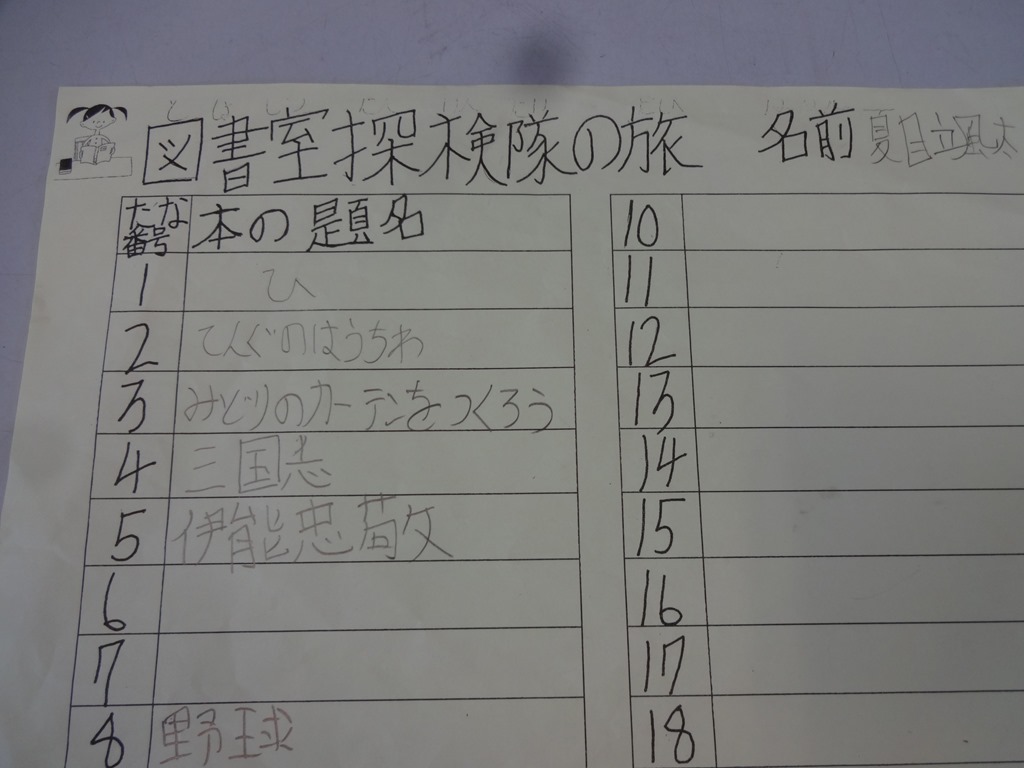 図書室探検隊の旅 名前 夏目颯太
たな番号 本の題名
1 ひ
2 てんぐのはうちわ
3 みどりのカーテンをつくろう
4 三国志
5 伊能忠敬
6
7
8 野球
10
11
12
13
14
15
16
17
18